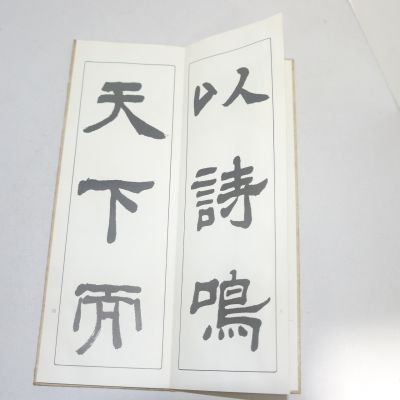 以詩鳴
天下而